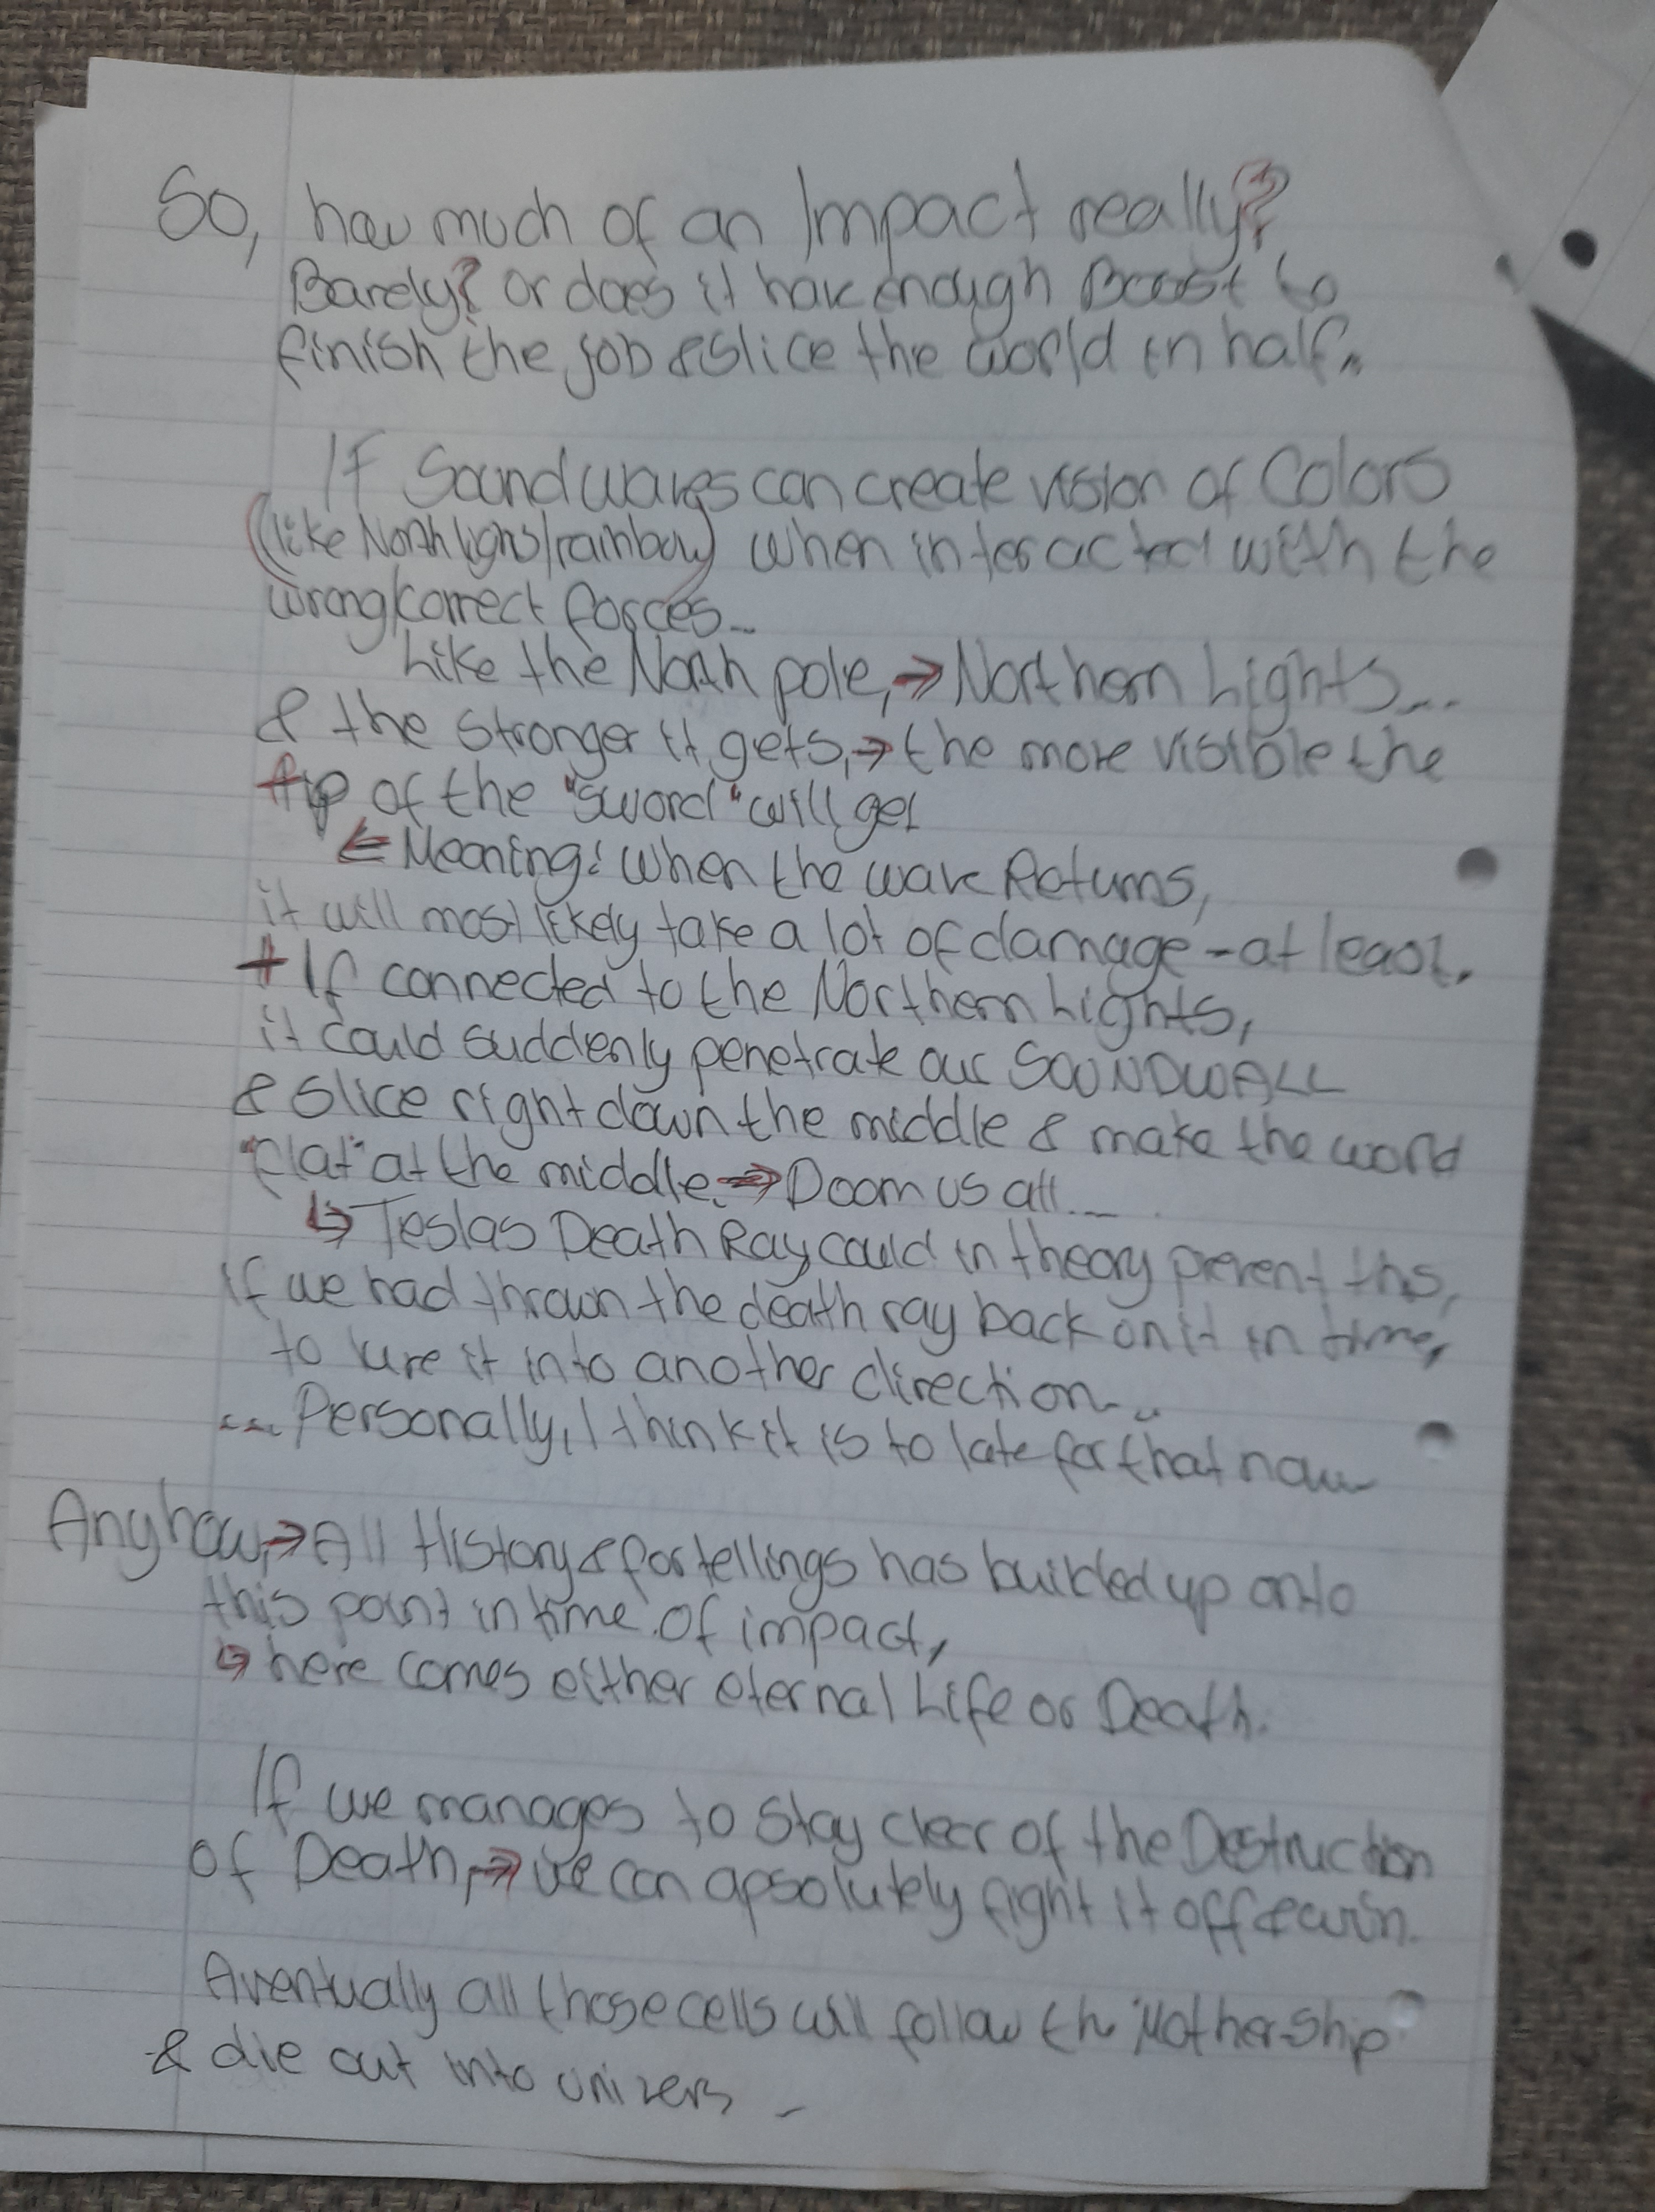 So, how much of an Impact really?
Barely? or does it have enough Boost to
finish the job & slice the world in half..
If Soundwaves can create vision of Colors
(like North lighs/rainbow) when interacted with the
wrong/correct forces...
Like the North pole, → Northern Lights...
& the stronger it gets, → the more visible the
tip of the "sword" will get
← Meaning: when the wave Returns,
it will most likely take a lot of damage - at least.
+ If connected to the Northern Lights,
it could suddenly penetrate our SOUNDWALL
& slice right down the middle & make the world
"flat" at the middle. → Doom us all...
↳ Teslas Death Ray could in theory prevent this,
if we had thrown the death ray back on it in time,
to lure it into another direction...
... Personally, I think it is to late for that now
Anyhow, → All History & fortellings has builded up onto
this point in time of impact,
↳ here comes either eternal Life or Death.
If we manages to stay clear of the Destruction
of Death, → we can apsolutely fight it off & win.
Aventually all those cells will follow th "Mothership"
& die out into univers -